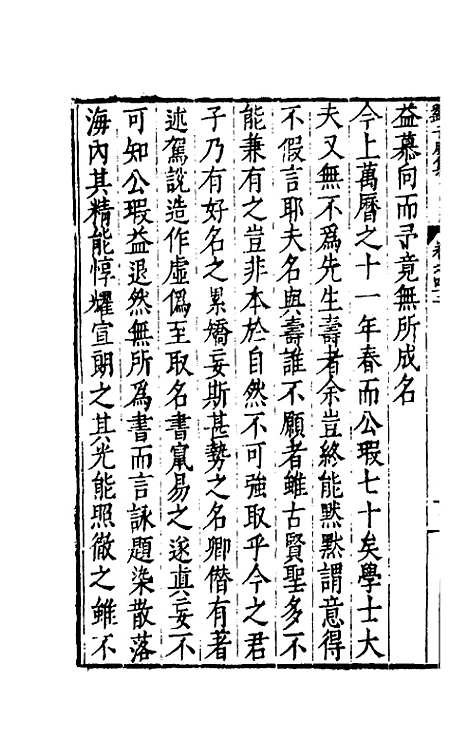 益慕向而予竟無所成名
今上萬曆之十一年春而公瑕七十矣學士大
夫又無不爲先生壽者余豈終能默默謂意得
不假言耶夫名與壽誰不願者雖古賢聖多不
能兼有之豈非本於自然不可強取乎今之君
子乃有好名之累矯妄斯甚勢之名卿僭有著
述駕說造作虛僞至取名書竄易之遂真妄不
可知公瑕益退然無所爲書而言詠題染散落
海內其精能惇耀宣朗之其光能照徹之雖不